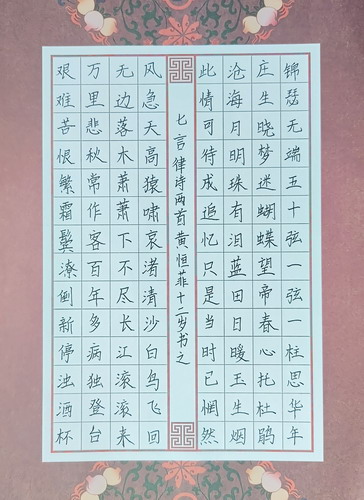 锦瑟无端五十弦一弦一柱思华年
庄生晓梦迷蝴蝶望帝春心托杜鹃
沧海月明珠有泪蓝田日暖玉生烟
此情可待成追忆只是当时已惘然
七言律诗两首黄恒菲十二岁书之
风急天高猿啸哀渚清沙白鸟飞回
无边落木萧萧下不尽长江滚滚来
万里悲秋常作客百年多病独登台
艰难苦恨繁霜鬓潦倒新停浊酒杯